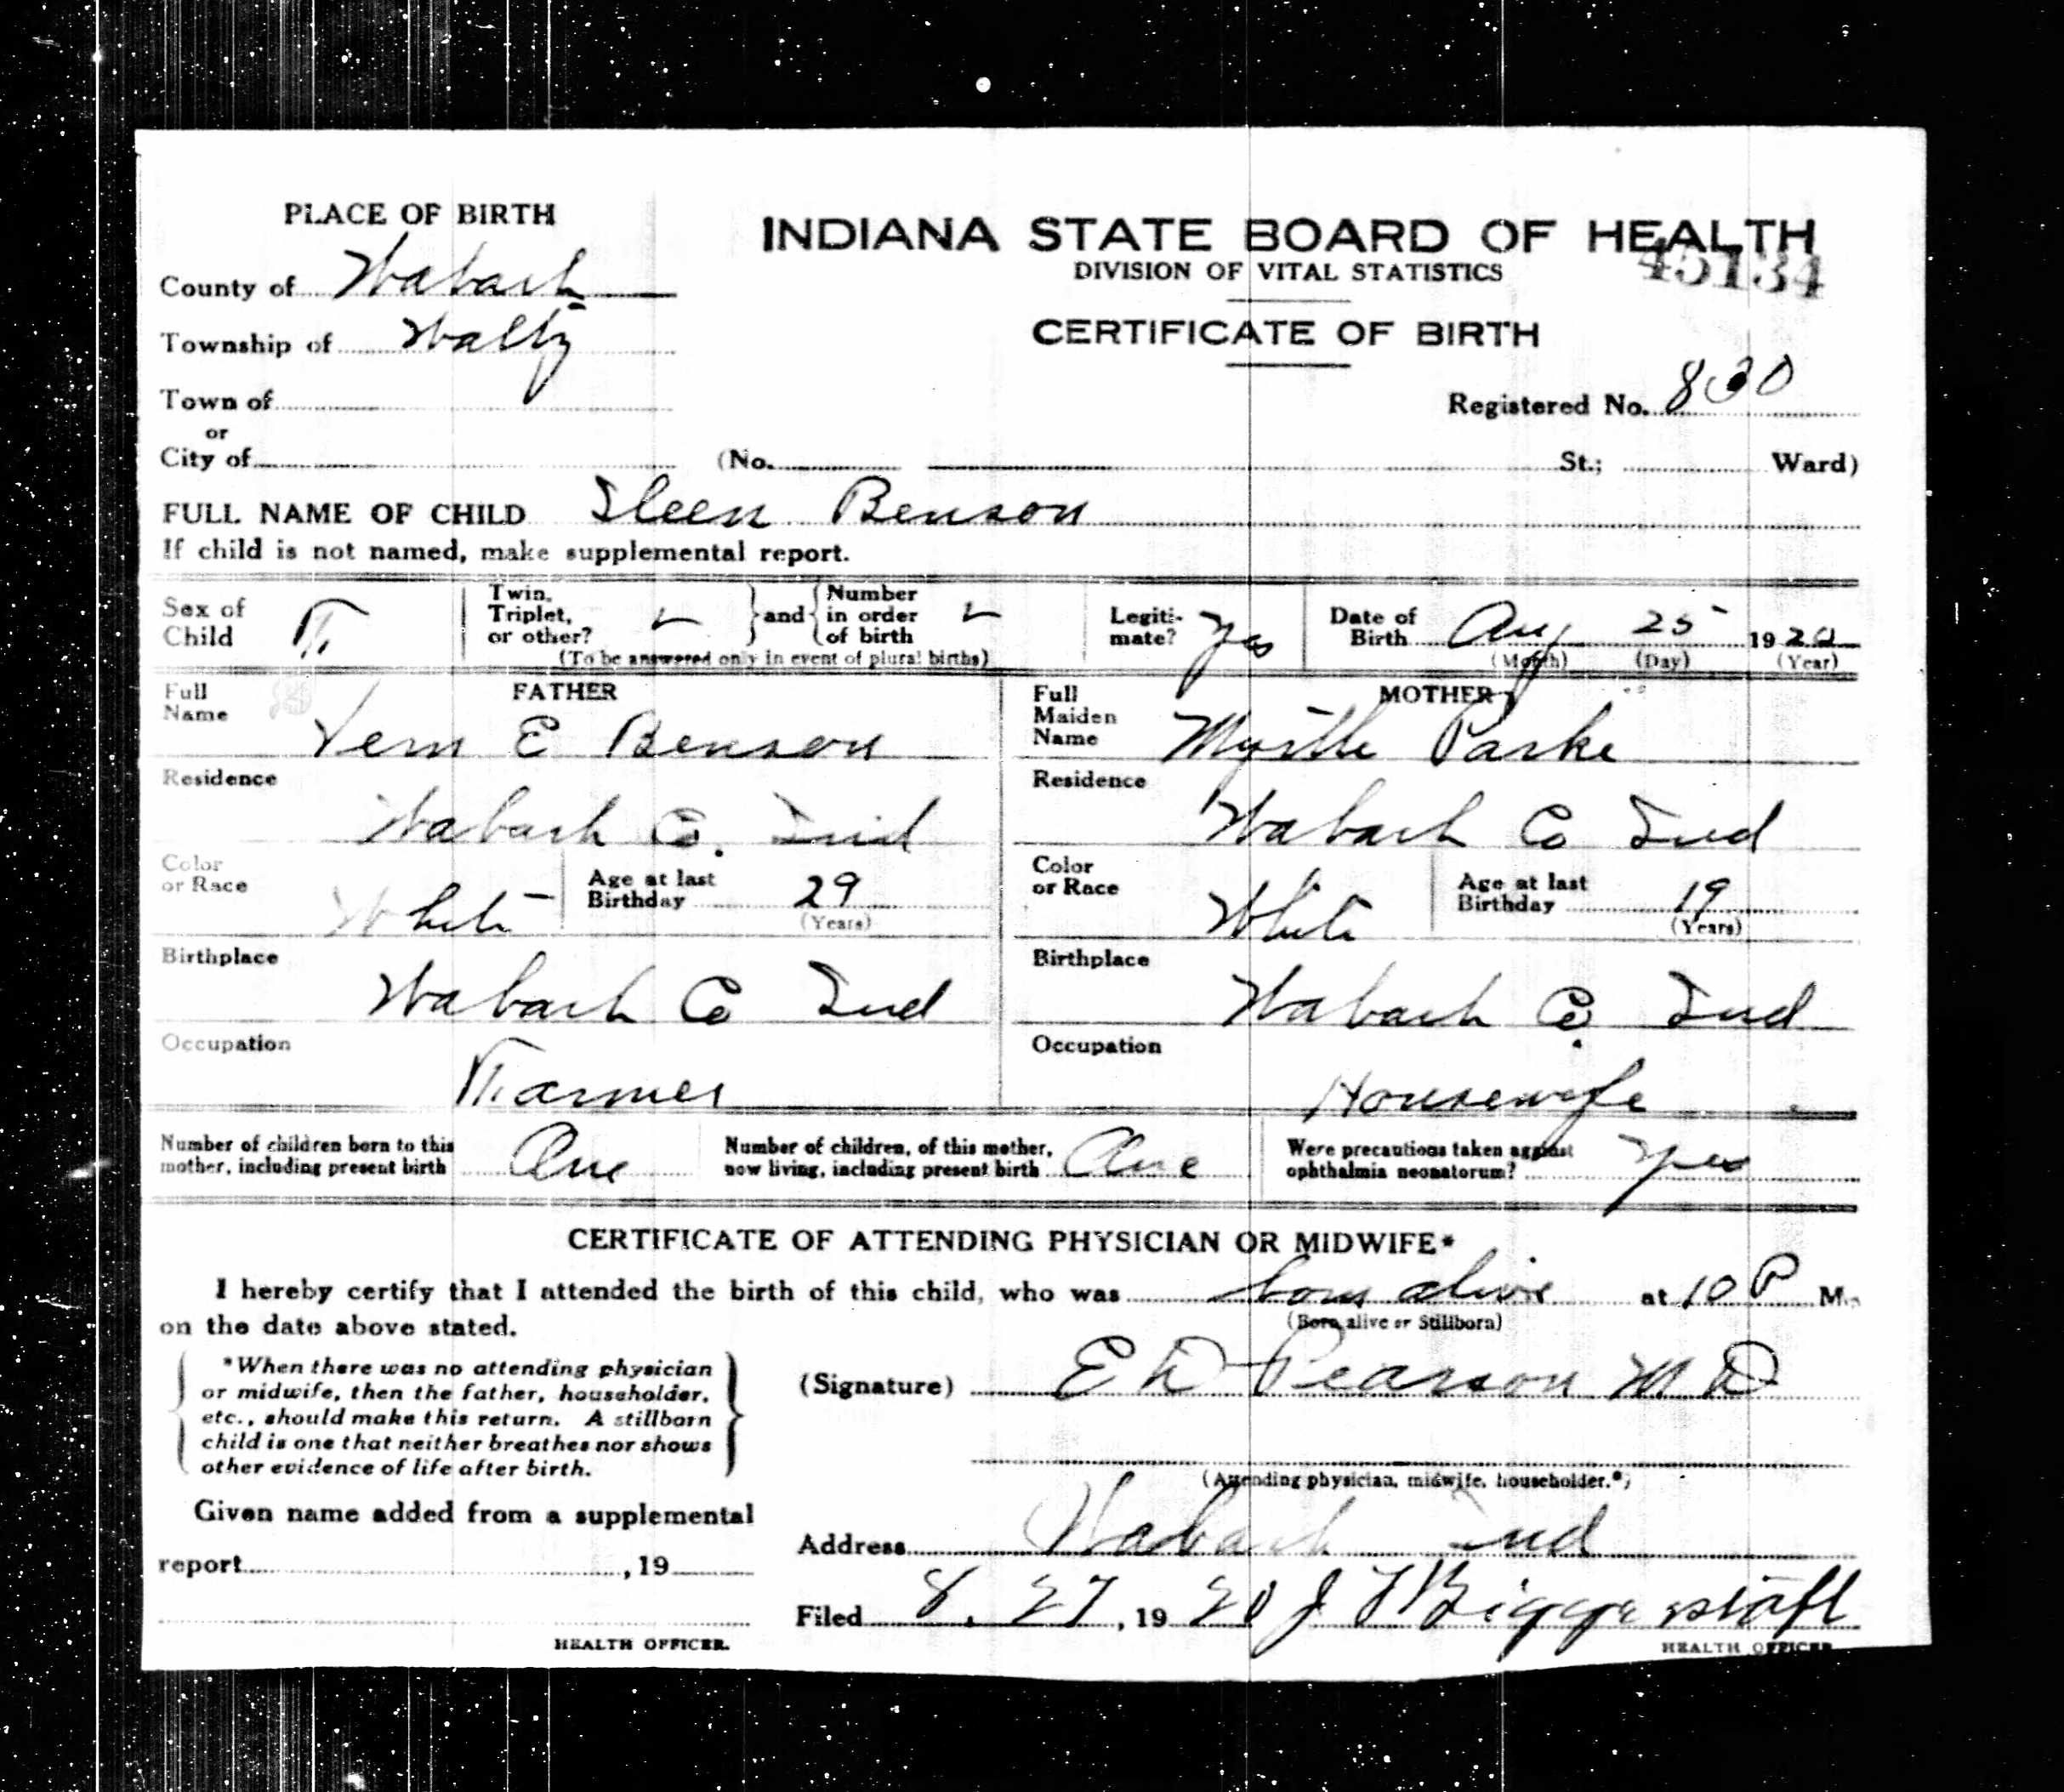 PLACE OF BIRTH
INDIANA STATE BOARD OF HEALTH
45134
DIVISION OF VITAL STATISTICS
County of Wabash
Township of Waltz
CERTIFICATE OF BIRTH
Town of
Registered No. 830
or
City of (No. St.; Ward)
FULL NAME OF CHILD Ileen Benson
If child is not named, make supplemental report.
Sex of Child F.
Twin, Triplet, or other? and Number in order of birth
(To be answered only in event of plural births)
Legiti-mate? Yes
Date of Birth Aug 25 1920
(Month) (Day) (Year)
FATHER
Full Name Vern E Benson
Residence
Wabash Co. Ind
Color or Race White
Age at last Birthday 29
(Years)
Birthplace
Wabash Co Ind
Occupation
Farmer
MOTHER
Full Maiden Name Myrtle Parke
Residence
Wabash Co Ind
Color or Race White
Age at last Birthday 19
(Years)
Birthplace
Wabash Co. Ind
Occupation
Housewife
Number of children born to this mother, including present birth One
Number of children, of this mother, now living, including present birth One
Were precautions taken against ophthalmia neonatorum? yes
CERTIFICATE OF ATTENDING PHYSICIAN OR MIDWIFE*
I hereby certify that I attended the birth of this child, who was born alive at 10 P M.
(Born alive or Stillborn)
on the date above stated.
*When there was no attending physician
or midwife, then the father, householder,
etc., should make this return. A stillborn
child is one that neither breathes nor shows
other evidence of life after birth.
(Signature) Pearson M D
(Attending physician, midwife, householder.*)
Given name added from a supplemental
report , 19
HEALTH OFFICER.
Address Wabash Ind
Filed 8. 27, 1920 J F Biggerstaff
HEALTH OFFICER